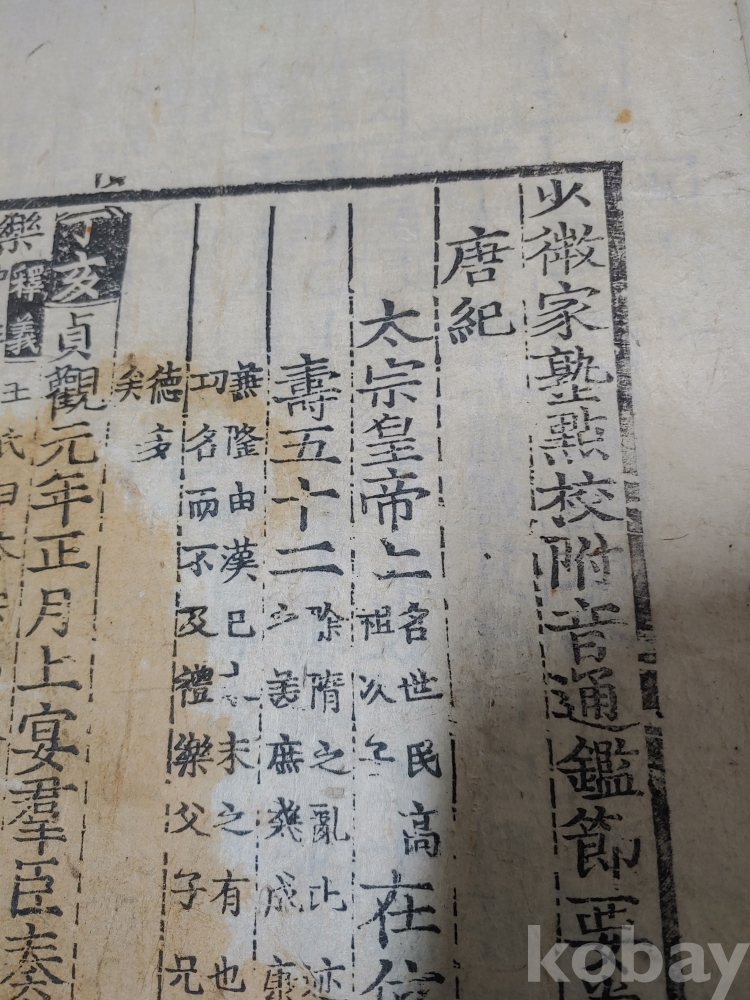 少微家塾點校附音通鑑節要
唐紀
太宗皇帝上
名世民高
祖次
在位
壽五十二
除隋之亂比迹
之羙庶㡬成康
兼隆由漢已來未之有也
功名而不及禮樂父子兄
德多
矣
丁亥貞觀元年正月上宴羣臣奏
樂
釋義
王氏曰
kobay